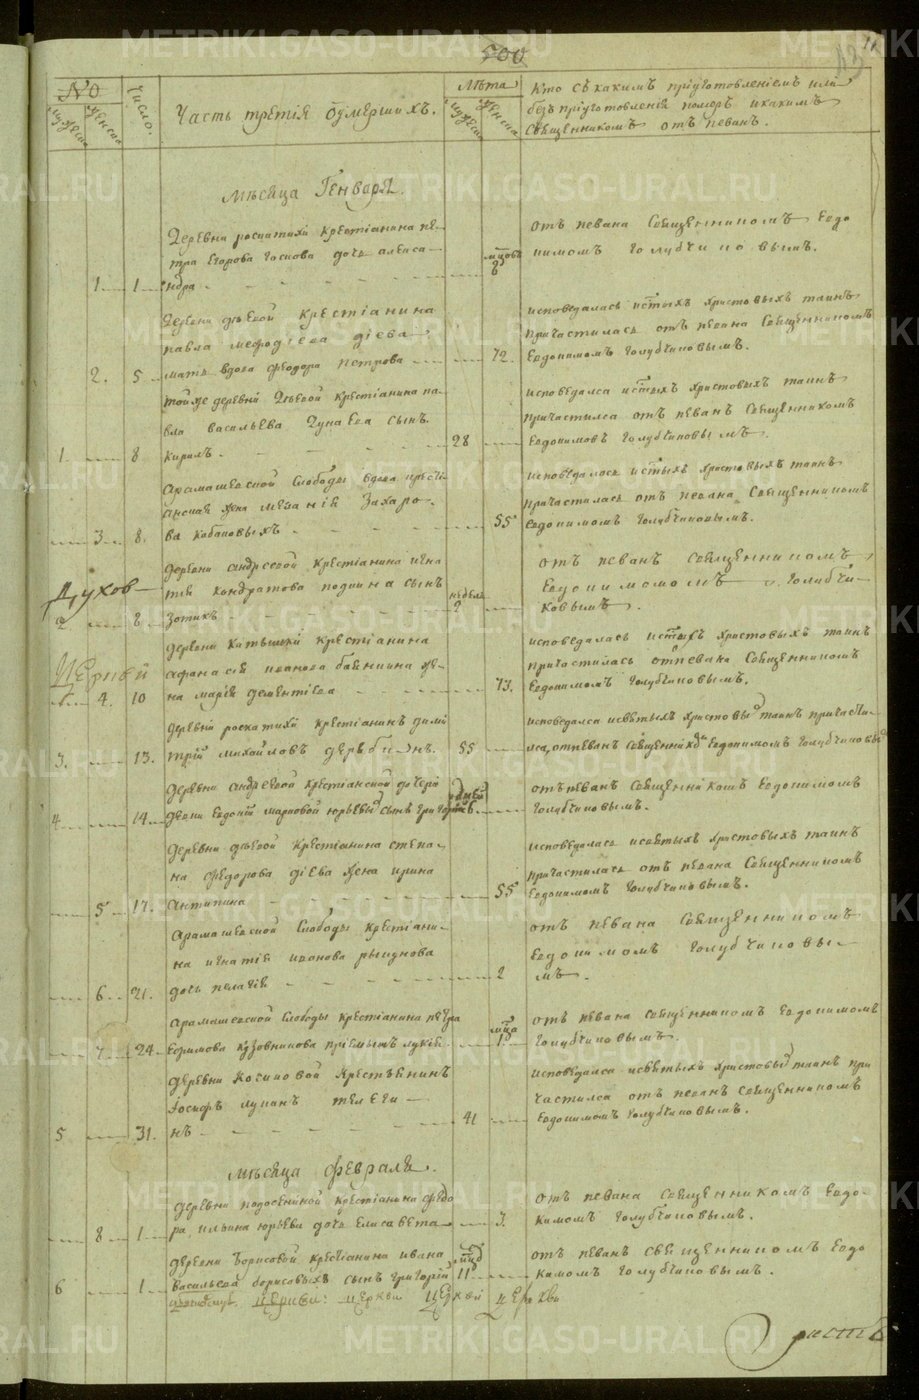 500
13
№
Число.
Часть третія Оумершихъ.
Лѣта
Кто съ какимъ пріуготовленіемъ или
безъ пріуготовленія померъ и какимъ
Священникомъ отъпеванъ.
мужеска
женска
мужеска
женска
Мѣсяца Генваря.
1 1
Деревни роскатихи крестіанина пе-
тра Егорова Госкова дочь алекса-
ндра
6
отъ певана Священникомъ Евдо
кимомъ Голубчиковымъ.
2. 5
Деревни дѣевой крестіанина
павла мефодіева дієва
мать вдова феодора петрова
72.
исповедалась истыхъ христовыхъ таинъ
причастилась отъ певана Священникомъ
Евдокимомъ Голубчиковымъ.
1. 8
тойже деревни Дѣевой крестіанина па-
вла васильева Дунаева сынъ
Кирилъ.
28
исповедался истыхъ христовыхъ таинъ
причастился отъ певанъ Священникомъ
Евдокимовъ Голубчиковымъ.
3. 8.
арамашевской Слободы вдова кресті-
анская жена меланія Захаро-
ва Кабаковыхъ
55
исповедалась истыхъ христовыхъ таинъ
причастилась отъ певана Священникомъ
Евдокимомъ Голубчиковымъ.
Духов
2 8
деревни андреевой крестіанина игна
тия Кондратова сынъ
Зотикъ
недель
2
отъ певанъ Священникомъ
Евдокимомомъ Голубчи-
ковымъ.
Церквей
4. 10
деревни Катышки крестіанина
афанасія иванова жe-
на марія дементіева
73.
исповедалась истыхъ христовыхъ таинъ
причастилась отпевана Священникомъ
Евдокимомъ Голубчиковымъ.
3. 13.
деревни роскатихи крестіанинъ дими
трій михайловъ дерябинъ.
55
исповедался исвятыхъ христовыхъ таинъ причасти-
лся, отпеванъ Священникомъ Евдокимомъ Голубчиковымъ
4 14
деревни андреевой крестіанской дочери
девки Евдокіи марковой юрьевыхъ сынъ григорій
дней
6
отъпеванъ Священникомъ Евдокимомъ
Голубчиковымъ.
5 17.
деревни дѣевой крестіанина степа-
на федорова дієва жена ирина
антипина
55
исповедалась исвятыхъ христовыхъ таинъ
причастилась отъ певана Священникомъ
Евдокимомъ Голубчиковымъ.
6 21.
арамашевской Слободы крестіани-
на игнатія иванова рычкова
дочь пелагія
2
отъ певана Священникомъ
Евдокимомъ Голубчиковы-
мъ.
7 24.
арамашевской Слободы крестіанина петра
Ефимова Кузовникова пріемышъ лукія
мца
1
отъ певана священникомъ Евдокимомъ
Голубчиковымъ.
5 31.
деревни Косиковой Крестьенинъ
іосифъ лукинъ телеги-
нъ
41
исповедался исвятыхъ христовыхъ таинъ при
частился отъ певанъ Священникомъ
Евдокимомъ Голубчиковымъ.
Мѣсяца Февраля.
8 1
деревни подосениной крестіанина федо
ра ильина юрьева дочь Елисавета
3.
отъ певана Священникомъ Евдо-
кимомъ Голубчиковымъ.
6 1
деревни борисовой крестіанина ивана
васильева борисовыхъ сынъ григорій
11
отъ певанъ Священникомъ Евдо
кимомъ Голубчиковымъ.
церкви: церкви церквей церкви
METRIKI.GASO-URAL.RU